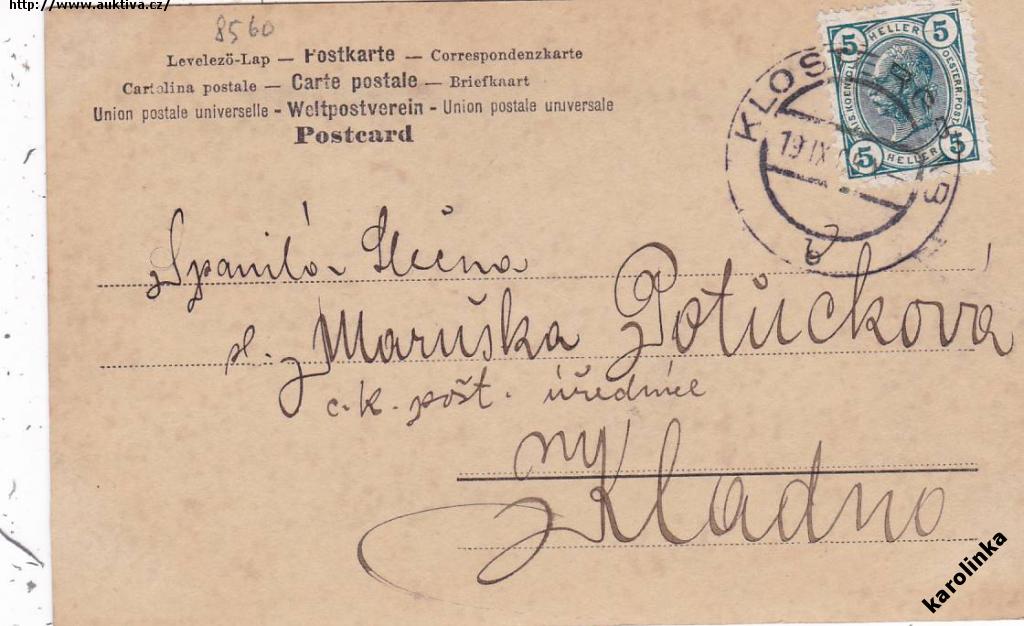 http://www.auktiva.cz/
8560
Levelező-Lap — Postkarte — Correspondenzkarte
Cartolina postale — Carte postale — Briefkaart
Union postale universelle - Weltpostverein - Union postale universale
Postcard
5 HELLER 5
5 HELLER 5
KLOS
19 IX
Spanilá Slečna
sl. Maruška Potůčková
c.k. pošt. úřednice
Kladno
karolinka